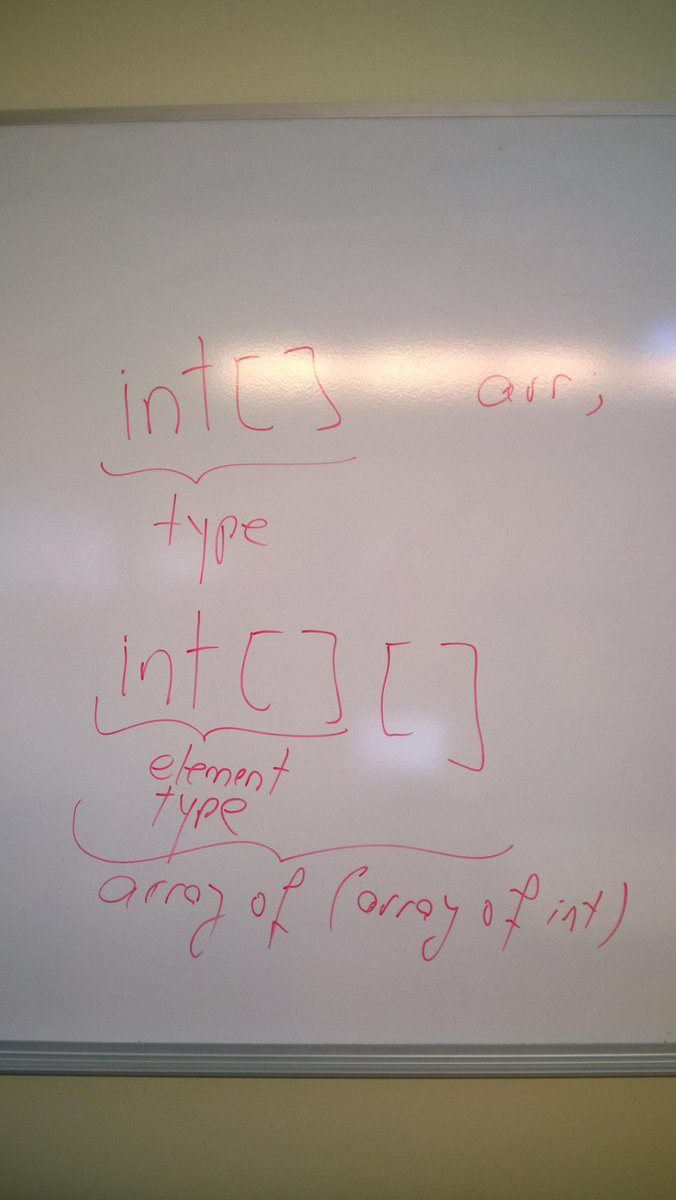 int[] arr;
type
int[][]
element
type
array of (array of int)